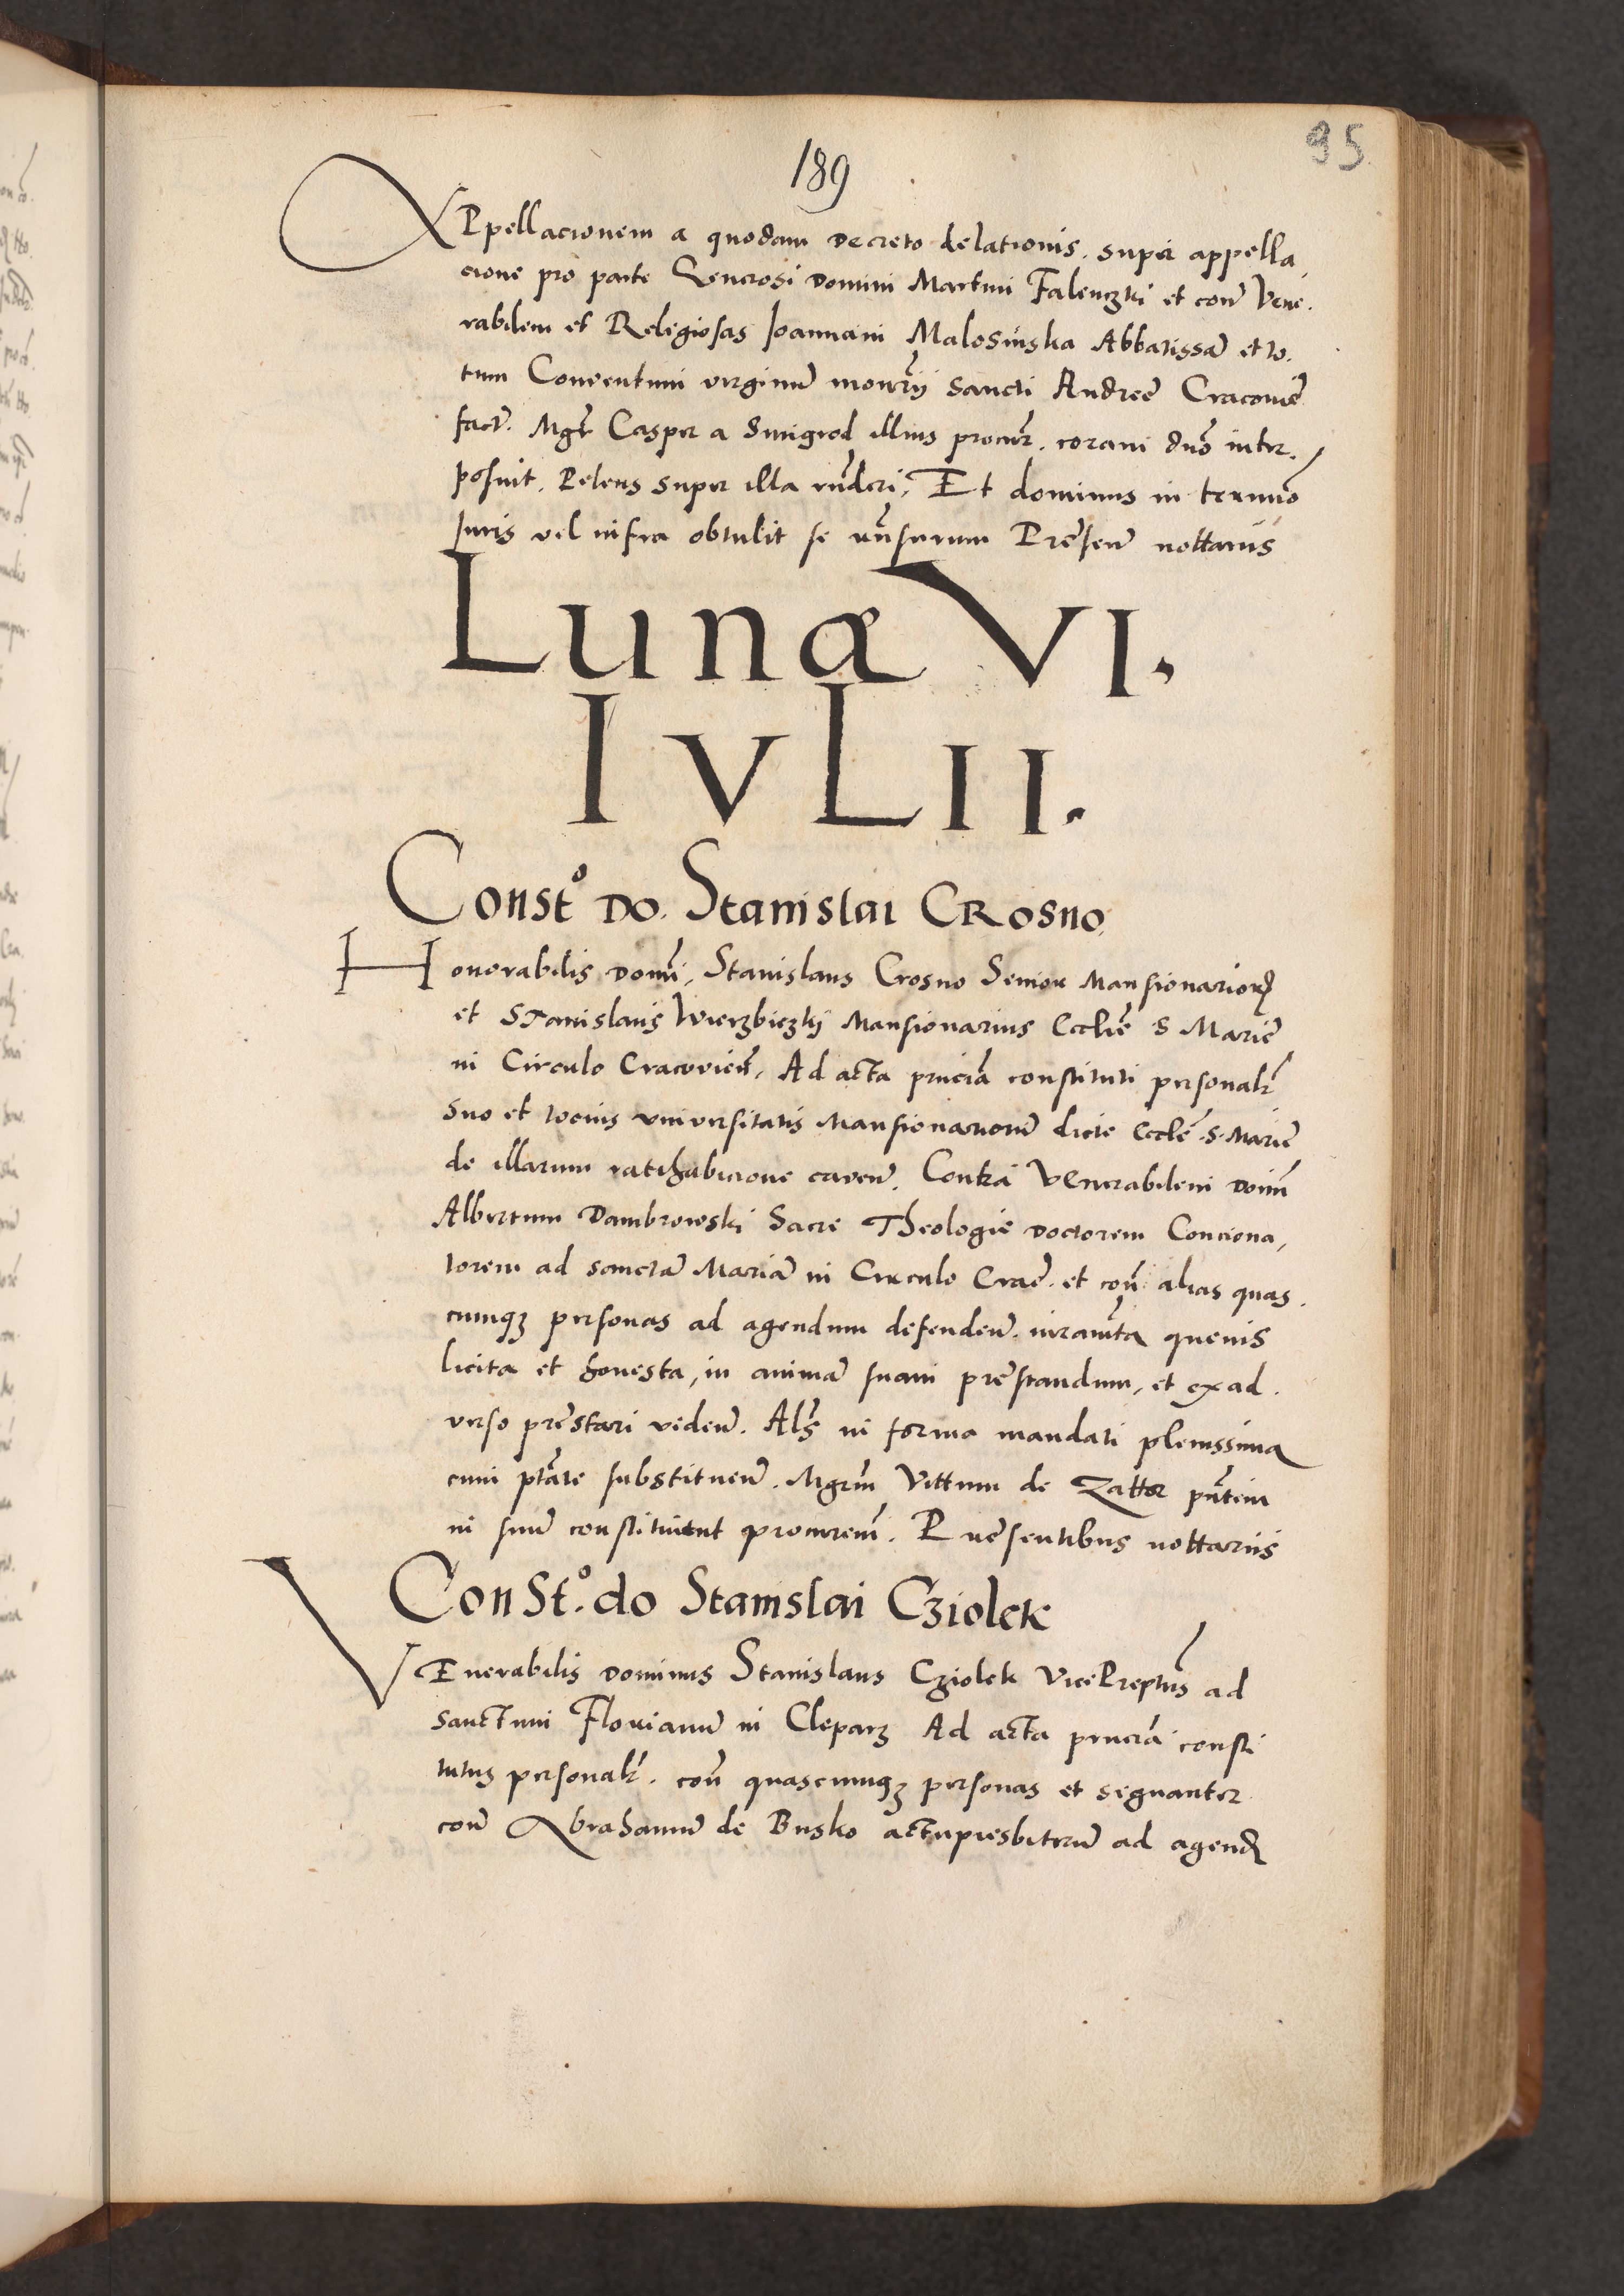 95
189
APpellacionem a quodam Decreto delationis. super appella
cione pro parte Generosi Domini Martini Falenczki et coñ Vene.
rabilem et Religiosas Joannam Malosinska Abbatissā et to.
tum Conventum virginū monrÿ Sancti Andreę Cracovię
fact. Mgr Casper a Smigrod illius procur. coram dno inter.
posuit. Petens super illa rnderi, Et dominus in termino
Juris vel infra obtulit se rnsurum Presen nottarÿs
Lunæ VI.
IVLII.
Const° DO. Stanislai CRosno
Honorabilis Domi, Stanislaus Crosno Senior Mansionarior
et STanislaus Wierzbiczkÿ Mansionarius Ecclię S Marię
in Circulo Cracovien. Ad acta pnciā constituti personalr
suo et tocius universitatis Mansionariorū dicte Ecclę .S. Marię
de illarum ratihabicione caven. Contra VEnerabilem Domī
Albertum Dambrowski Sacre Theologię Doctorem Conciona,
torem ad sanctā Mariā in Circulo Crac. et coñ alias quas.
cumqꝫ personas ad agendum defenden. iuramta quevis
licita et honesta, in animā suam prestandum, et ex ad.
verso prestari viden. Als in forma mandati plenissima
cum ptate substituen. Mgrm Vittum de Zattor pntem
in suū constituunt procurem. PResentibus nottariis
ConSt°. do Stanislai Cziolek
VEnerabilis Dominus Stanislaus Cziolek VicePreptus ad
Sanctum Florianū in Cleparz Ad acta pnciā consti
tutus personalr. coñ quascumqꝫ personas et segnanter
coñ Abrahamū de Busko actupresbiterū ad agend